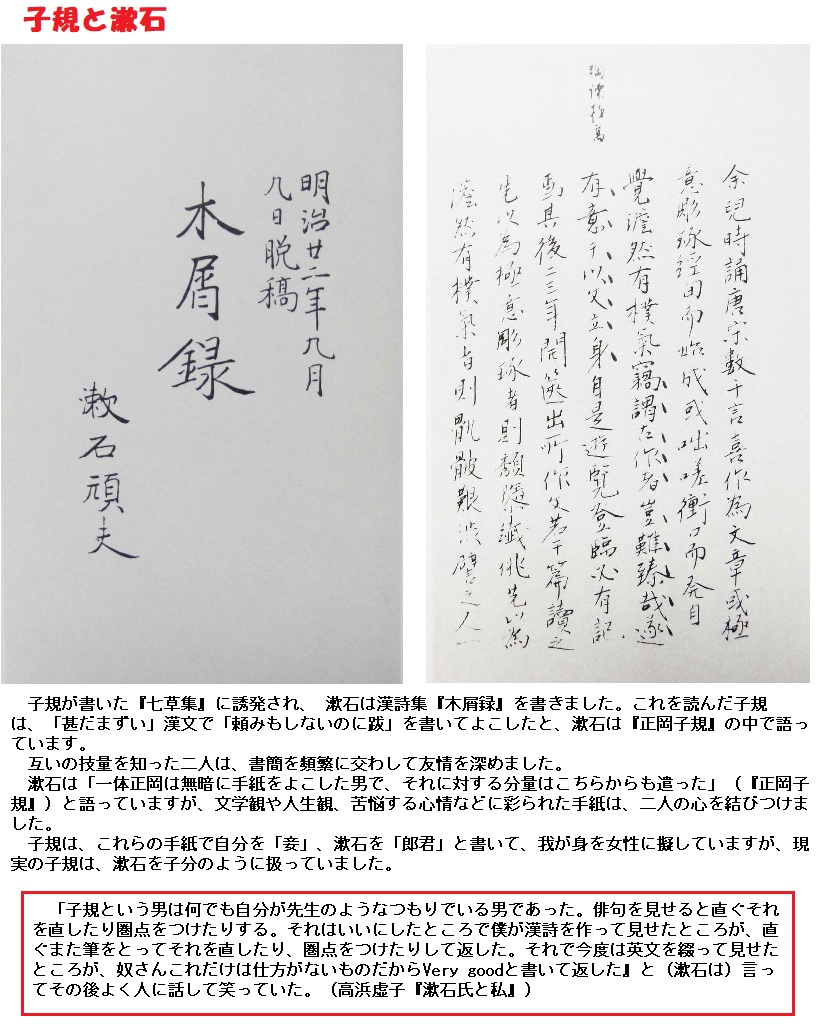 子規と漱石
明治廿二年九月
九日脱稿
木屑録
漱石頑夫
余兒時誦唐宋數千言喜作為文章或極
意彫琢經旬而始成或咄嗟衝口而発自
覺澹然有樸氣竊謂古作者豈難臻哉遂
有意于以文立身自是遊覽登臨必有記
焉其後二三年開篋出所作文若干篇讀之
先以為極意彫琢者則頽隳繊佻先以為
澹然有樸氣者則骫骳艱渋譬之人一
子規が書いた『七草集』に誘発され、 漱石は漢詩集『木屑録』を書きました。これを読んだ子規
は、「甚だまずい」漢文で「頼みもしないのに跋」を書いてよこしたと、漱石は『正岡子規』の中で語っ
ています。
互いの技量を知った二人は、書簡を頻繁に交わして友情を深めました。
漱石は「一体正岡は無暗に手紙をよこした男で、それに対する分量はこちらからも遣った」（『正岡子
規』）と語っていますが、文学観や人生観、苦悩する心情などに彩られた手紙は、二人の心を結びつけま
した。
子規は、これらの手紙で自分を「妾」、漱石を「郎君」と書いて、我が身を女性に擬していますが、現
実の子規は、漱石を子分のように扱っていました。
「子規という男は何でも自分が先生のようなつもりでいる男であった。俳句を見せると直ぐそれ
を直したり圏点をつけたりする。それはいいにしたところで僕が漢詩を作って見せたところが、直
ぐまた筆をとってそれを直したり、圏点をつけたりして返した。それで今度は英文を綴って見せた
ところが、奴さんこれだけは仕方がないものだからVery goodと書いて返した』と（漱石は）言っ
てその後よく人に話して笑っていた。（高浜虚子『漱石氏と私』）